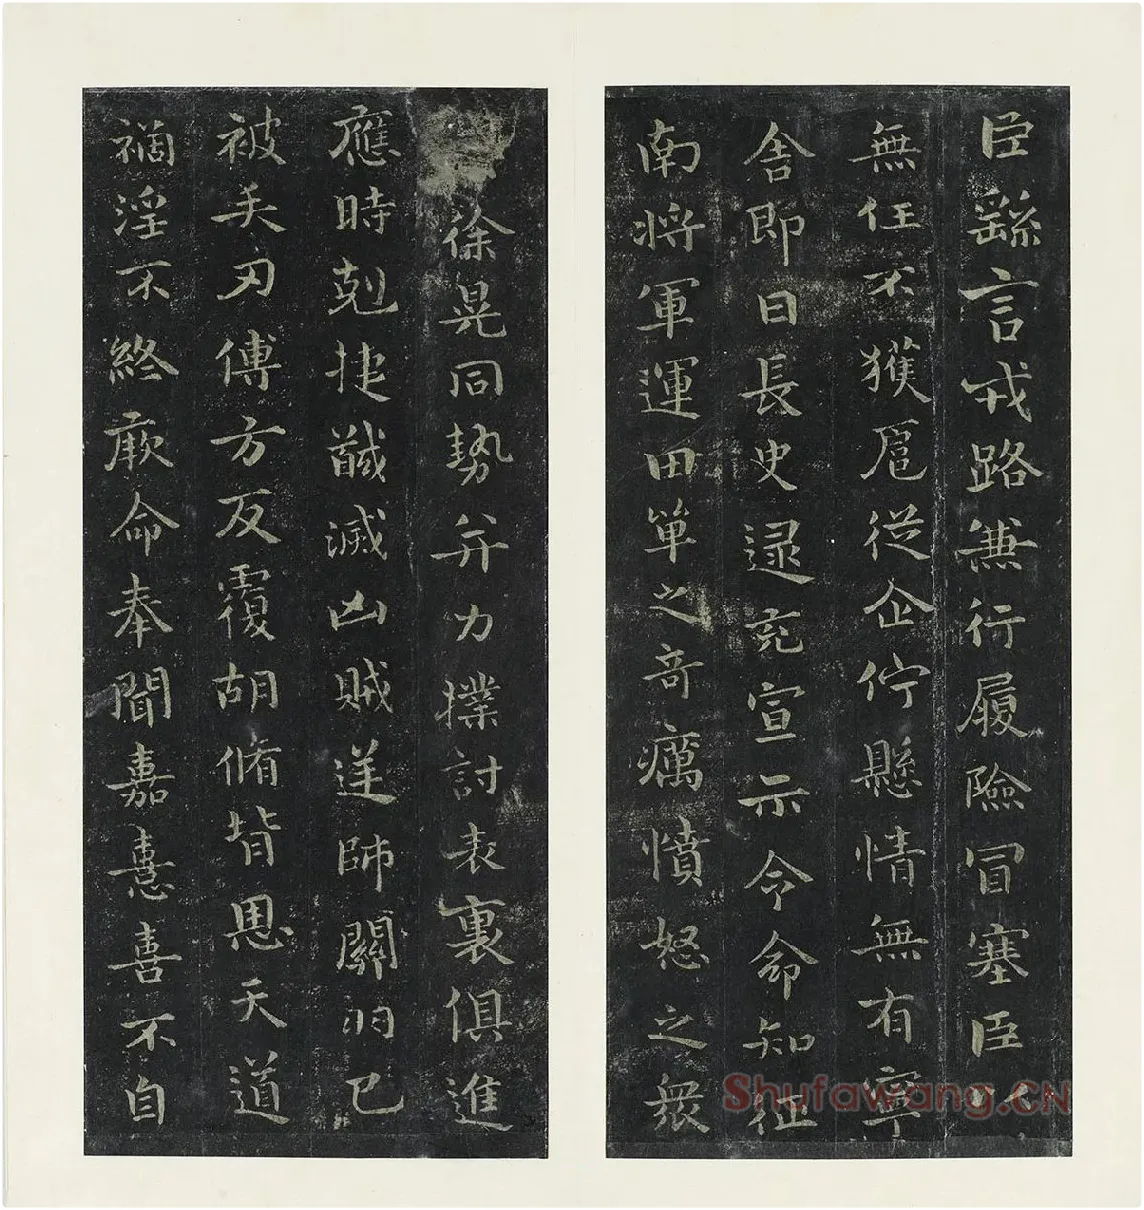 臣繇言戎路兼行履險冒塞臣以
無任不獲扈從企佇懸情無有寧
舍即日長史逯充宣示令命知征
南將軍運田單之奇癘憤怒之衆
徐晃同勢并力撲討表裏俱進
應時剋捷馘滅凶賊逆帥關羽已
被矢刃傅方反覆胡脩背恩天道
禍淫不終厥命奉聞嘉憙喜不自
Shufawang.CN